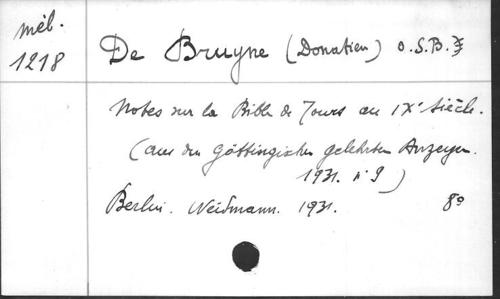 mél.
1218
De Bruyne (Donatien) O.S.B.
Notes sur la Bible de Tours au IXe siècle.
(aus den Göttingischen gelehrten Anzeigen
1931. n° 9)
Berlin. Weidmann. 1931. 8°